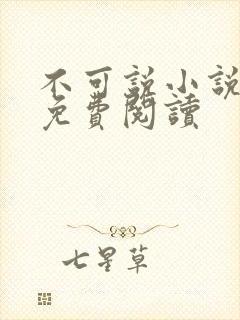 不可説小説
免費閱讀
七星草